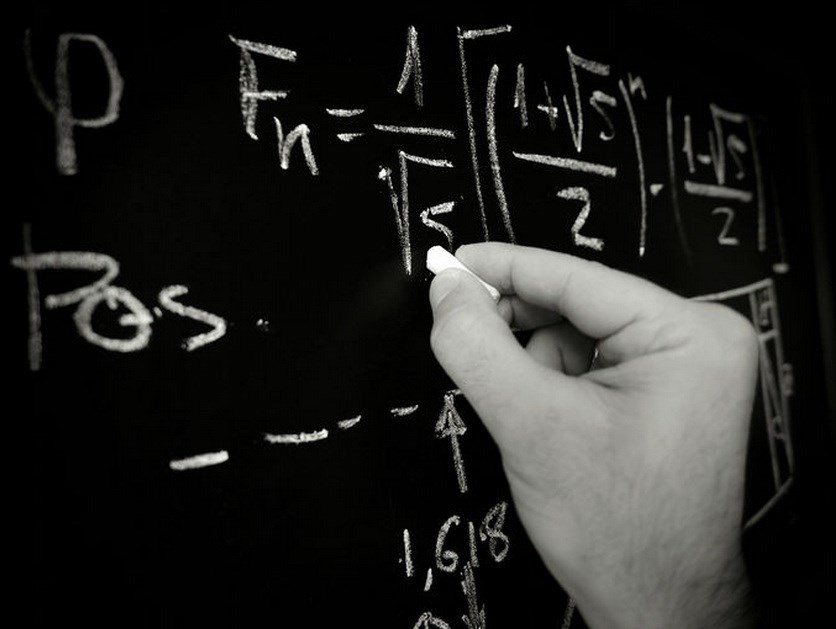 φ
Fn = 1/√5 [((1+√5)/2)^n · ((1-√5)/2)
Pos.
1,618